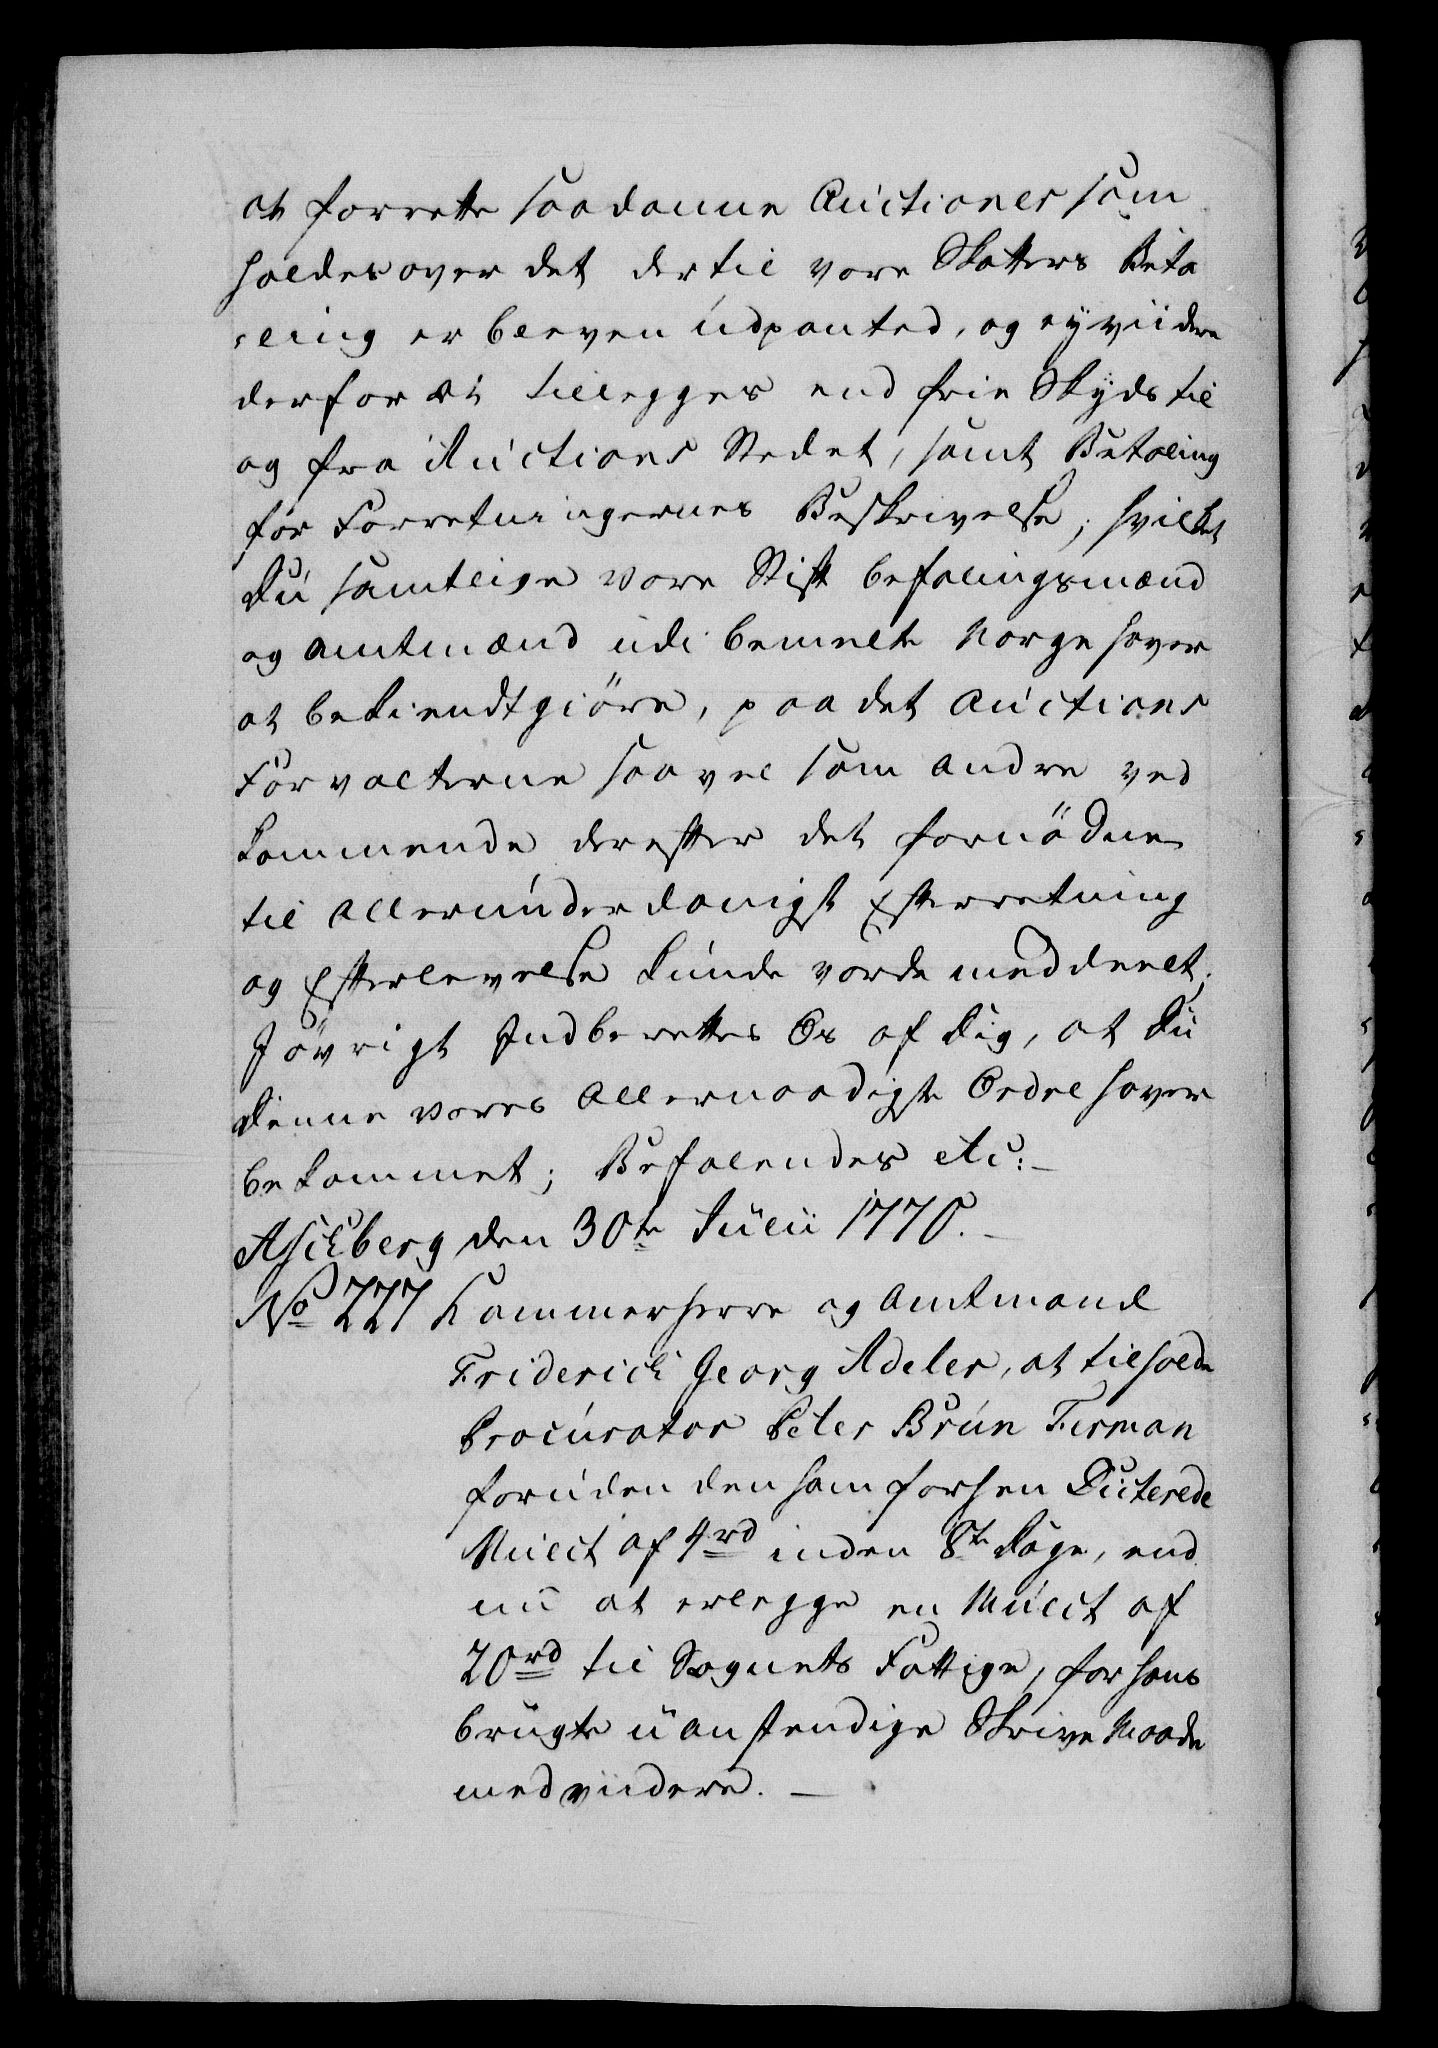 at forrette saadanne Auctioner som
holdes over det der til vore Skatters Beta
ling er bleven udpanted, og ey viidere
derfor at tillegges end frie Skyds til
og fra Auctions Stedet, samt Betaling
for Forretningernes Beskrivelse; hvilket
Du samtlige vore Stift befalingsmænd
og Amtmænd udi bemelte Norge haver
at bekiendtgiöre, paa det Auctions
Forvalterne saavel som andre ved
kommende derefter det fornödne
til Allerunderdanigst Efterretning
og Efterlevelse kunde vorde meddeelt;
Jövrigt Indberettes Os af Dig, at Du
denne vores Allernaadigste Ordre haver
bekommet; Befalendes etc:
Aschberg den 30te Julii 1770.
No 227 Kammerherre og Amtmand
Friderich Georg Adeler, at tilholde
Procurator Peter Brun Ferman
foruden den ham forhen Dicterede
Mulct af 4rd inden 8te Dage, end
nu at erlegge en Mulct af
20rd til Sognets Fattige, for hans
brugte uanstendige Skrive Maade
med viidere.